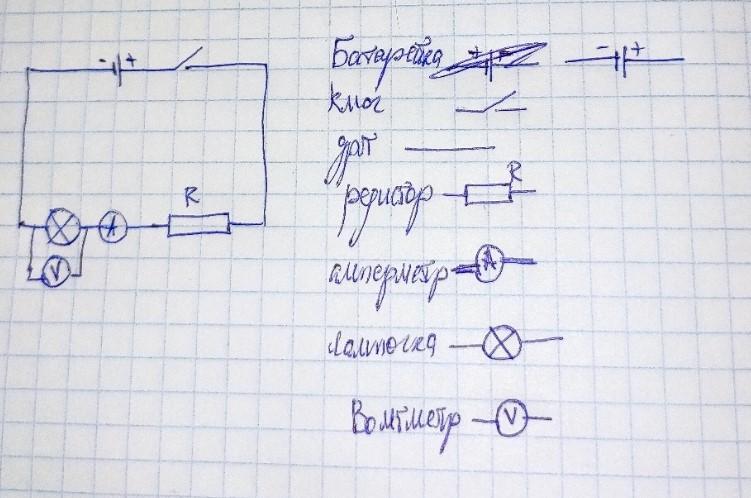 - +
R
A
V
Батарейка - +
ключ
резистор R
амперметр A
лампочка
Вольтметр V